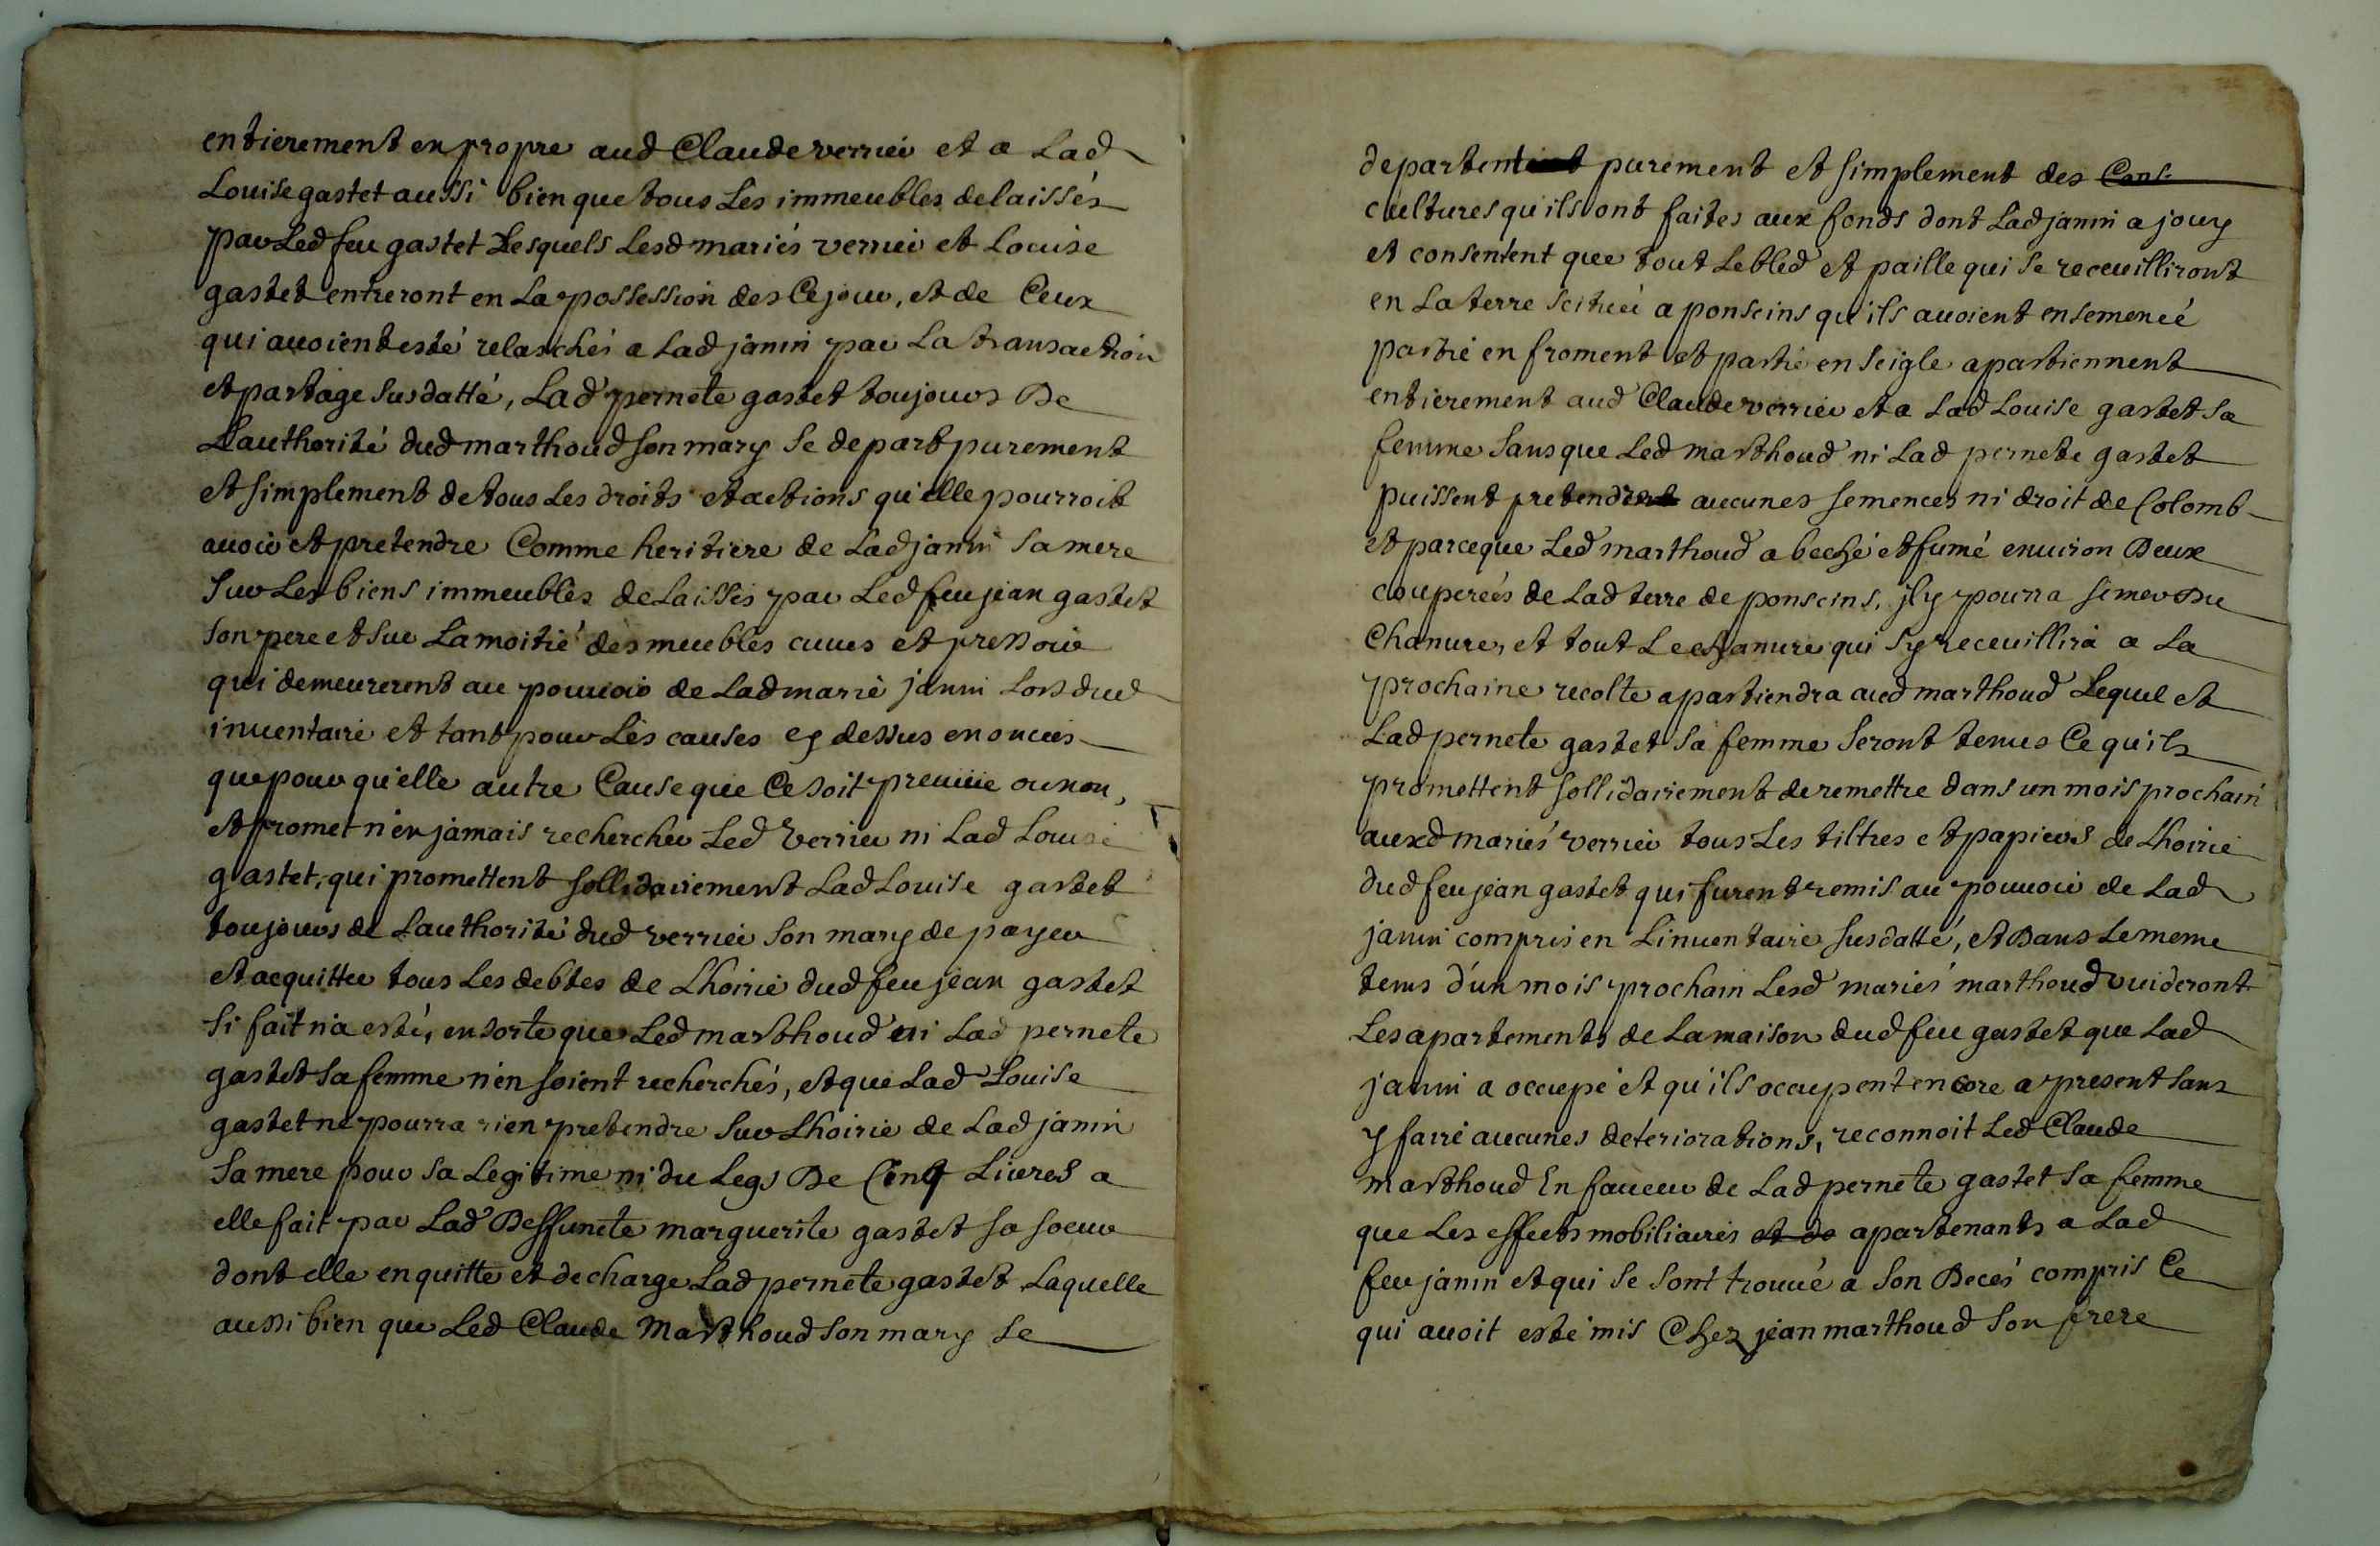 entierement en propre aud Claude verrier et a Lad
Louise gastet aussi bien que tous Les immeubles delaissés
par Led feu gastet Lesquels Lesd mariés verrier et Louise
gastet entreront en La possession des Ce jour, et de Ceux
qui auoient esté relaschés a Lad janin par La transaction
et partage susdatté, Lad pernete gastet toujours De
Lauthorité dud marthoud son mary se depart purement
et simplement de tous Les droits et actions qu'elle pourroit
auoir et pretendre Comme heritiere de Lad janin sa mere
sur Les biens immeubles delaissés par Led feu jean gastet
son pere et sur La moitié des meubles cuues et pressoir
qui demeurerent au pouuoir de Lad marie janin Lors dud
inuentaire et tant pour Les causes cy dessus enoncées
que pour qu'elle autre Cause que Ce soit preuüe ou non,
et promet n'en jamais rechercher Led verrier ni Lad Louise
gastet, qui promettent sollidairement Lad Louise gastet
toujours de Lauthorité dud verrier son mary de payer
et acquitter tous Les debtes de Lhoirie dud feu jean gastet
si fait n'a esté, en sorte que Led marthoud ni Lad pernete
gastet sa femme n'en soient recherchés, et que Lad Louise
gastet ne pourra rien pretendre sur Lhoirie de Lad janin
sa mere pour sa Legitime ni du Legs De Cinq Liures a
elle fait par Lad Deffuncte marguerite gastet sa soeur
dont elle en quitte et decharge Lad pernete gastet Laquelle
aussi bien que Led Claude Marthoud son mary se
departent purement et simplement des Cens
cultures qu'ils ont faites aux fonds dont Lad janin a jouy
et consentent que tout Le bled et paille qui se receuilliront
en La terre scituée a ponscins qu'ils auoient ensemencé
partie en froment et partie en seigle apartiennent
entierement aud Claude verrier et a Lad Louise gastet sa
femme sans que Led marthoud ni Lad pernete gastet
puissent pretendre aucunes semences ni droit de Colomb
et parceque Led marthoud a beché et fumé enuiron Deux
couperées de Lad terre de ponscins, jl y pourra semer Du
Chanure, et tout Le chanure qui s'y receuillira a La
prochaine recolte apartiendra aud marthoud Lequel et
Lad pernete gastet sa femme seront tenus Ce qu'ils
promettent sollidairement de remettre dans un mois prochain
auxd mariés verrier tous Les tiltres et papiers de Lhoirie
dud feu jean gastet qui furent remis au pouuoir de Lad
janin compris en Linuentaire susdatté, et Dans Le meme
tems d'un mois prochain Lesd mariés marthoud vuideront
Les apartements de La maison dud feu gastet que Lad
janin a occupé et qu'ils occupent encore a present sans
y faire aucunes deteriorations, reconnoit Led Claude
marthoud En faueur de Lad pernete gastet sa femme
que Les effects mobiliaires et de apartenants a Lad
feu janin et qui se sont trouué a son Decés compris Ce
qui auoit esté mis Chez jean marthoud son frere